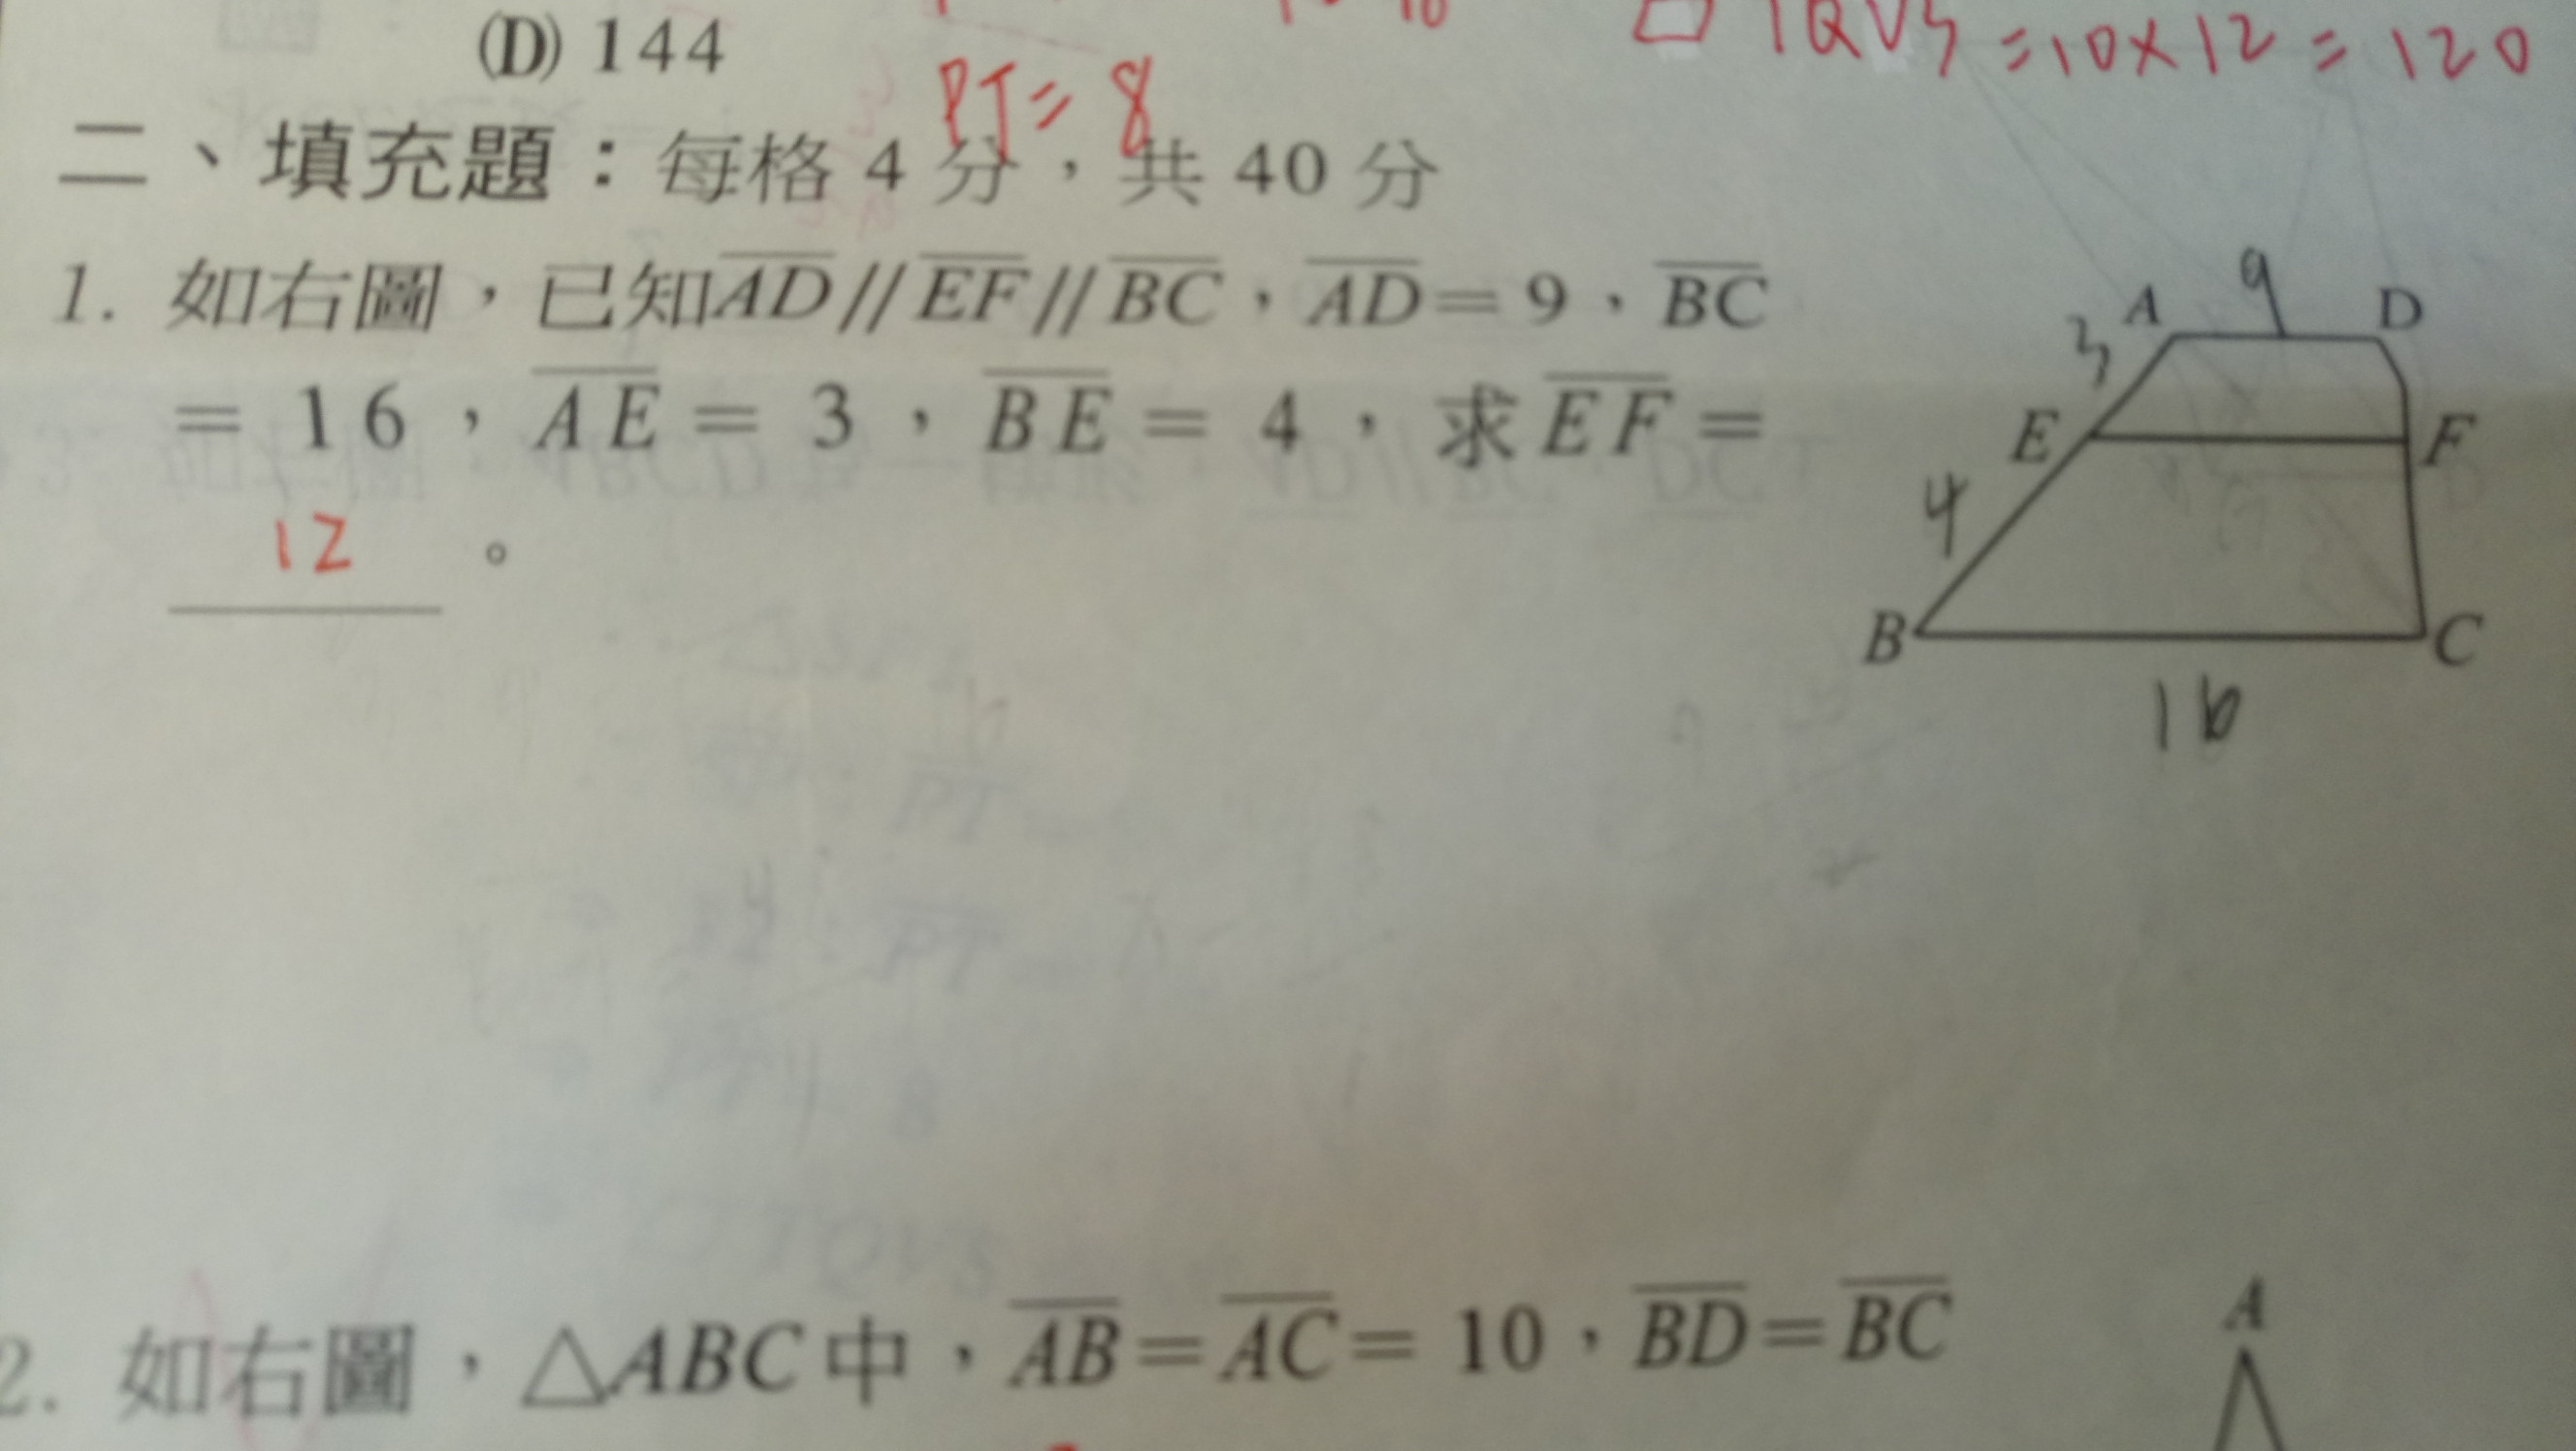 (D) 144
PT = 8
□ TQVS = 10 × 12 = 120
二、填充題：每格 4 分，共 40 分
1. 如右圖，已知AD // EF // BC，AD = 9，BC
= 16，AE = 3，BE = 4，求EF =
12 。
A 9 D
3
E F
4
B C
16
2. 如右圖，△ABC 中，AB = AC = 10，BD = BC
A